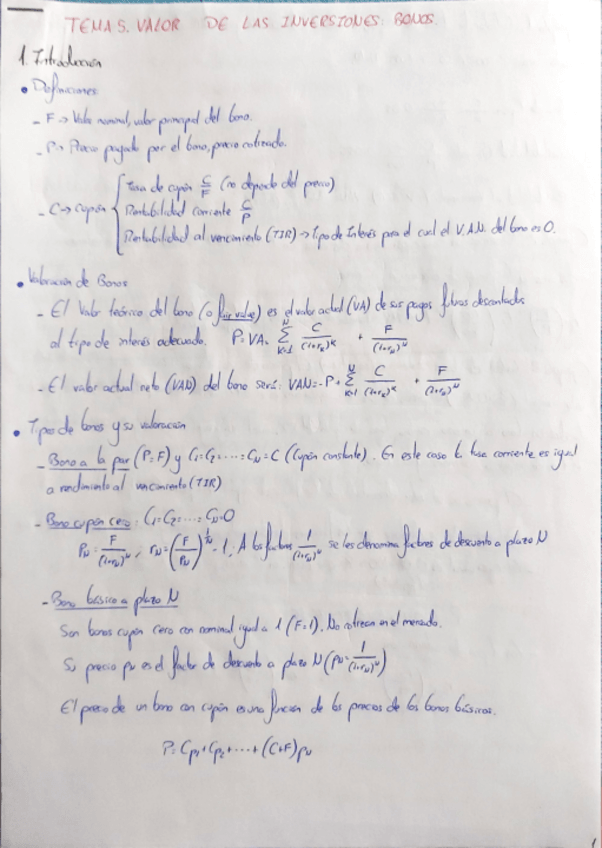 TEMA 5. VALOR DE LAS INVERSIONES: BONOS.
1. Introducción
• Definiciones:
- F → Valor nominal, valor principal del bono.
- P → Precio pagado por el bono, precio cotizado.
- C → Cupón { Tasa de cupón C/F (no depende del precio)
Rentabilidad corriente C/P
Rentabilidad al vencimiento (TIR) → Tipo de Interés para el cual el V.A.N. del bono es 0.
• Valoración de Bonos
- El Valor teórico del bono (o fair value) es el valor actual (VA) de sus pagos futuros descontados
al tipo de interés adecuado. P = VA = Σ_{k=1}^{N} C/(1+r_k)^k + F/(1+r_N)^N
- El valor actual neto (VAN) del bono será: VAN = -P + Σ_{k=1}^{N} C/(1+r_k)^k + F/(1+r_N)^N
• Tipos de bonos y su valoración
- Bono a la par (P=F) y C₁=C₂=....=C_N=C (Cupón constante). En este caso la tasa corriente es igual
a rendimiento al vencimiento (TIR)
- Bono cupón cero: C₁=C₂=....=C_N=0
P_N = F/(1+r_N)^N, r_N = (F/P_N)^{1/N} - 1. A los factores 1/(1+r_N)^N se les denomina factores de descuento a plazo N
- Bono básico a plazo N
Son bonos cupón cero con nominal igual a 1 (F=1). No cotizan en el mercado.
Su precio p_N es el factor de descuento a plazo N (p_N = 1/(1+r_N)^N)
El precio de un bono con cupón es una función de los precios de los bonos básicos.
P = Cp₁ + Cp₂ + ... + (C+F)p_N
1